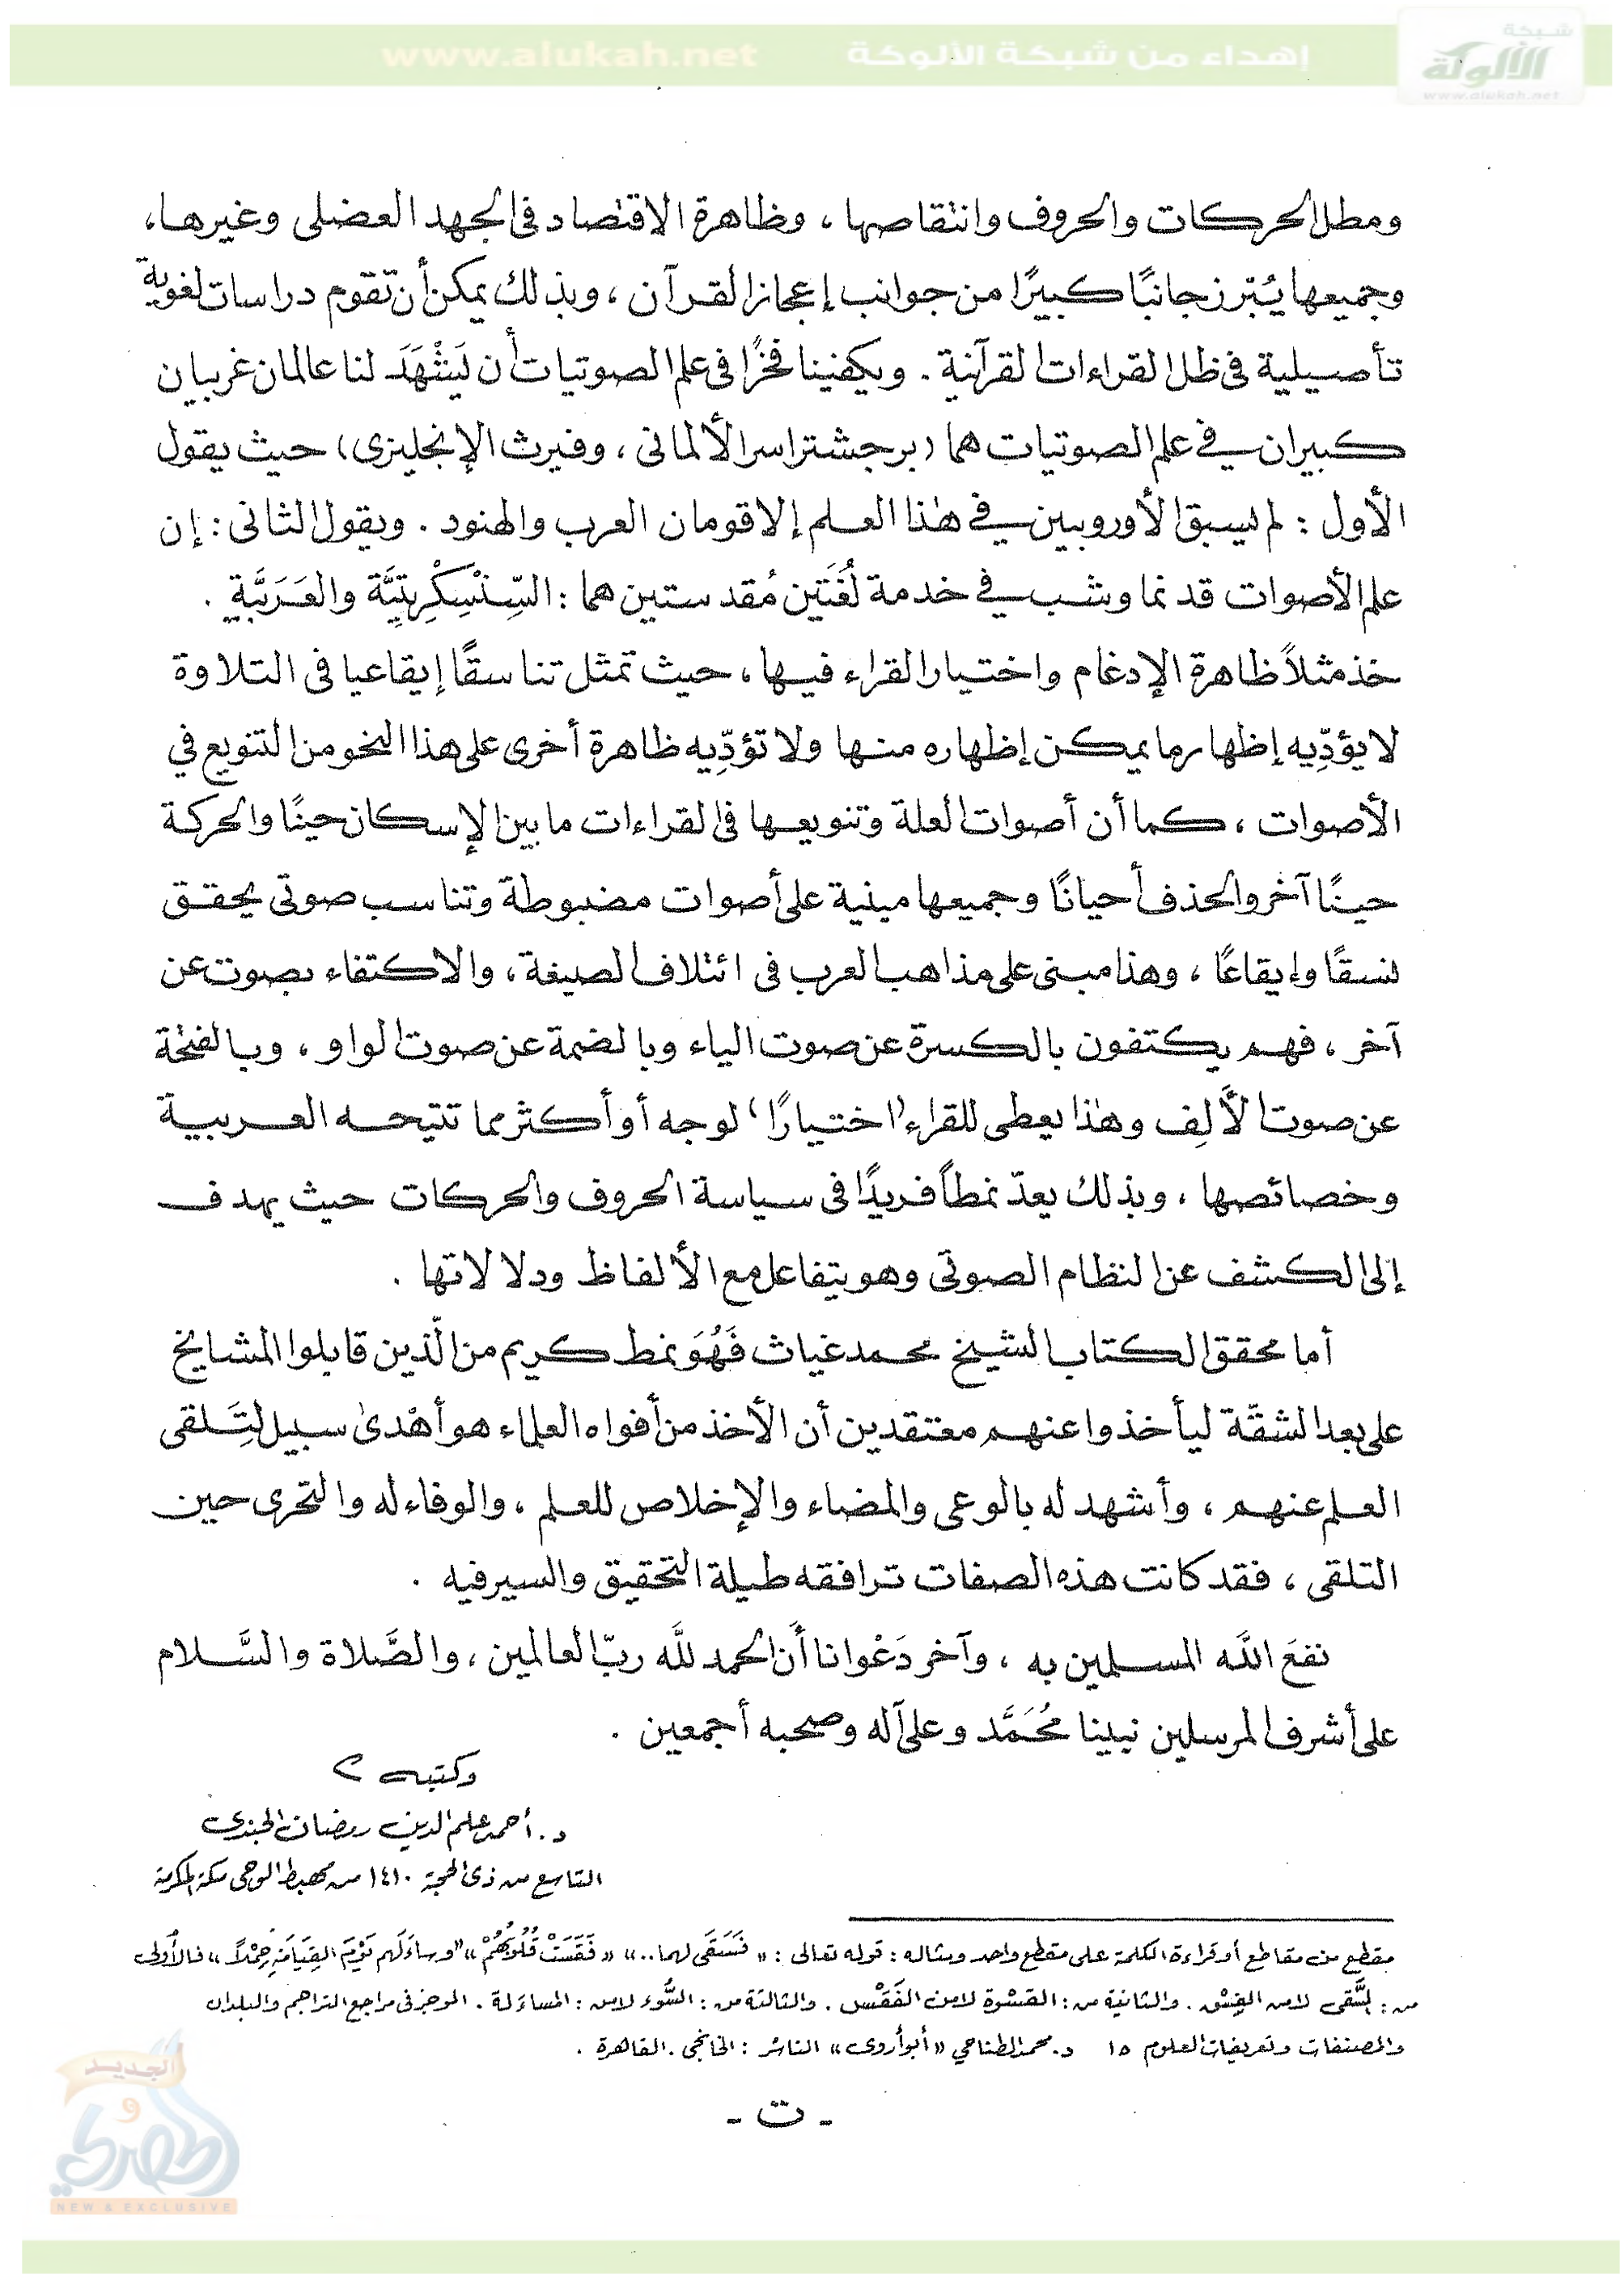 شبكة
الألوكة
www.alukah.net
إهداء من شبكة الألوكة www.alukah.net
ومطل الحركات والحروف وانتقاصها ، وظاهرة الاقتصاد فى الجهد العضلى وغيرها،
وجميعها يُبْرز جانبًا كبيرًا من جوانب إعجاز القرآن ، وبذلك يمكن أن تقوم دراسات لغوية
تأصيلية فى ظل القراءات القرآنية . ويكفينا فخرًا فى علم الصوتيات أن يَشْهَدَ لنا عالمان غربيان
كبيران فى علم الصوتيات هما (برجشتراسر الألمانى ، وفيرث الإنجليزى) حيث يقول
الأول : لم يسبق الأوروبيين فى هٰذا العلم إلا قومان العرب والهنود . ويقول الثانى : إن
علم الأصوات قد نما وشب فى خدمة لُغَتَين مُقدستين هما : السِّنْسِكْرِيتِيَّة والعَرَبيَّة .
خذ مثلاً ظاهرة الإدغام واختيار القراء فيها ، حيث تمثل تناسقًا إيقاعيا فى التلاوة
لا يؤدِّيه إظهار ما يمكن إظهاره منها ولا تؤدِّيه ظاهرة أخرى على هذا النحو من التنويع في
الأصوات ، كما أن أصوات العلة وتنويعها فى القراءات ما بين الإسكان حينًا والحركة
حينًا آخر والحذف أحيانًا وجميعها مبنية على أصوات مضبوطة وتناسب صوتى يحقق
نسقًا وإيقاعًا ، وهذا مبنى على مذاهب العرب فى ائتلاف الصيغة ، والاكتفاء بصوت عن
آخر ، فهم يكتفون بالكسرة عن صوت الياء وبالضمة عن صوت الواو ، وبالفتحة
عن صوت الأَلِف وهٰذا يعطى للقراء 'اختيارًا' لوجه أو أكثر مما تتيحه العربية
وخصائصها ، وبذلك يعدّ نمطاً فريدًا فى سياسة الحروف والحركات حيث يهدف
إلى الكشف عن النظام الصوتى وهو يتفاعل مع الألفاظ ودلالاتها .
أما محقق الكتاب الشيخ محمد غياث فَهُوَ نمط كريم من الّذين قابلوا المشايخ
على بعد الشقّة ليأخذوا عنهم معتقدين أن الأخذ من أفواه العلماء هو أهْدىٰ سبيل لتَِلقى
العلم عنهم ، وأشهد له بالوعى والمضاء والإخلاص للعلم ، والوفاء له والتحرى حين
التلقى ، فقد كانت هذه الصفات ترافقه طيلة التحقيق والسير فيه .
نفعَ اللَّه المسلمين به ، وآخر دَعْوانا أَن الحمد للَّه ربّ العالمين ، والصَّلاة والسَّلام
على أشرف المرسلين نبينا مُحَمَّد وعلى آله وصحبه أجمعين .
وكتبه
د. أحمد علم الدين رمضان الجندى
التاسع من ذى الحجة ١٤١٠ من مهبط الوحى مكة المكرمة
مقطع من مقاطع أو قراءة الكلمة على مقطع واحد ومثاله : قوله تعالى : « فَسَقَى لهما .. » « فَقَسَتْ قُلُوبُهُمْ » «وساءَ لَهم يَوْمَ القِيَامَةِ حِمْلاً » فالأُولى
من : السَّقى لا من الفِسْق . والثانية من : القسْوة لا من الفَقْس . والثالثة من : السُّوء لا من : المساءَلة . الموجز فى مراجع التراجم والبلدان
والمصنفات وتعريفات العلوم ١٥ د. محمد الطناحي « أبو أروى » الناشر : الخانجى . القاهرة .
- ت -
الجديد
و
الحصري
NEW & EXCLUSIVE